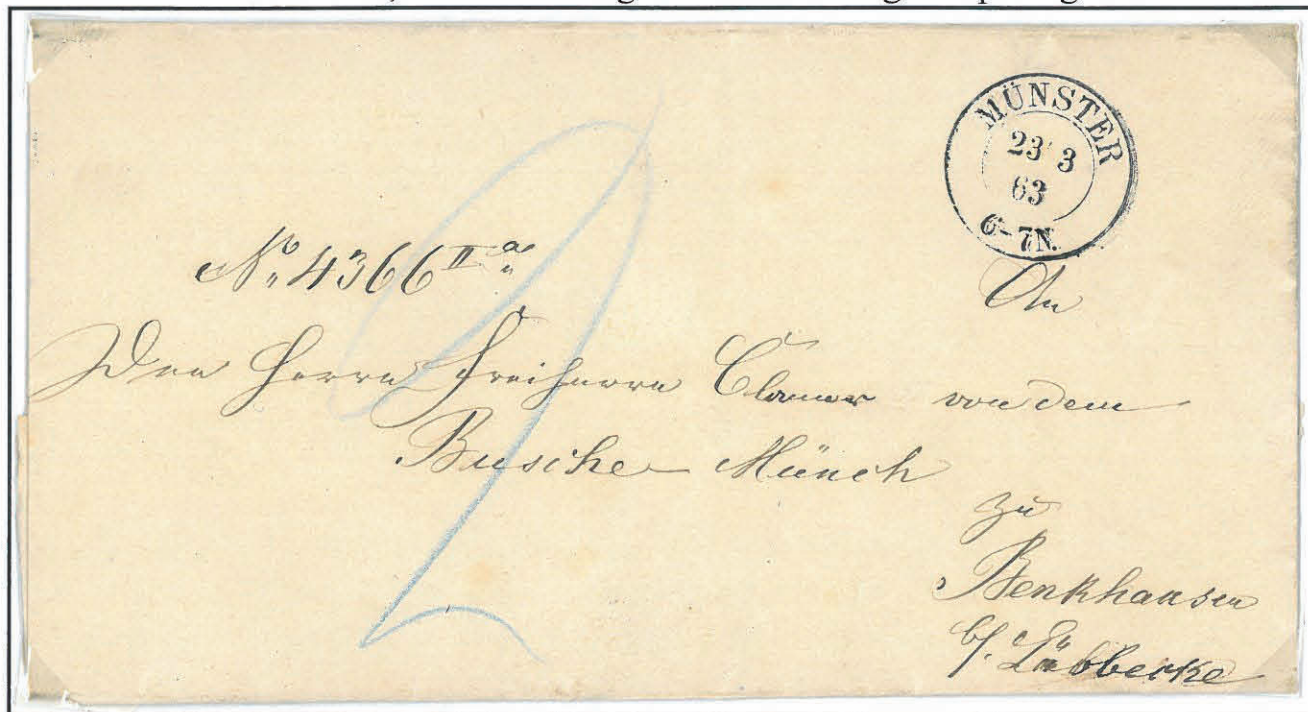 MÜNSTER
23 3
63
6-7N.
An
No 4366 II a
Den Herrn Freiherrn Clamor von dem
Busche-Münch
zu
Benkhausen
b/. Lübbecke
2